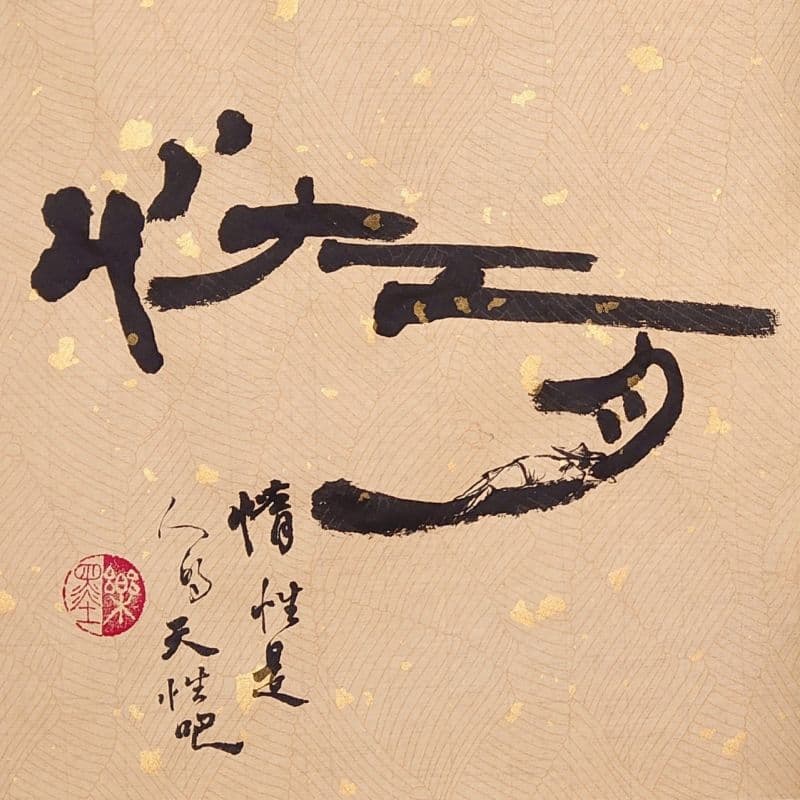 惰
惰性是
人的天性吧
樂墨